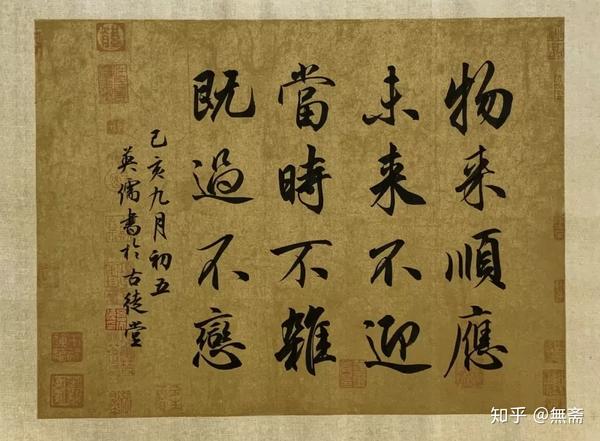 物来順應
未来不迎
當時不雜
既過不戀
己亥九月初五
英儒書於古徒堂
知乎 @無斋